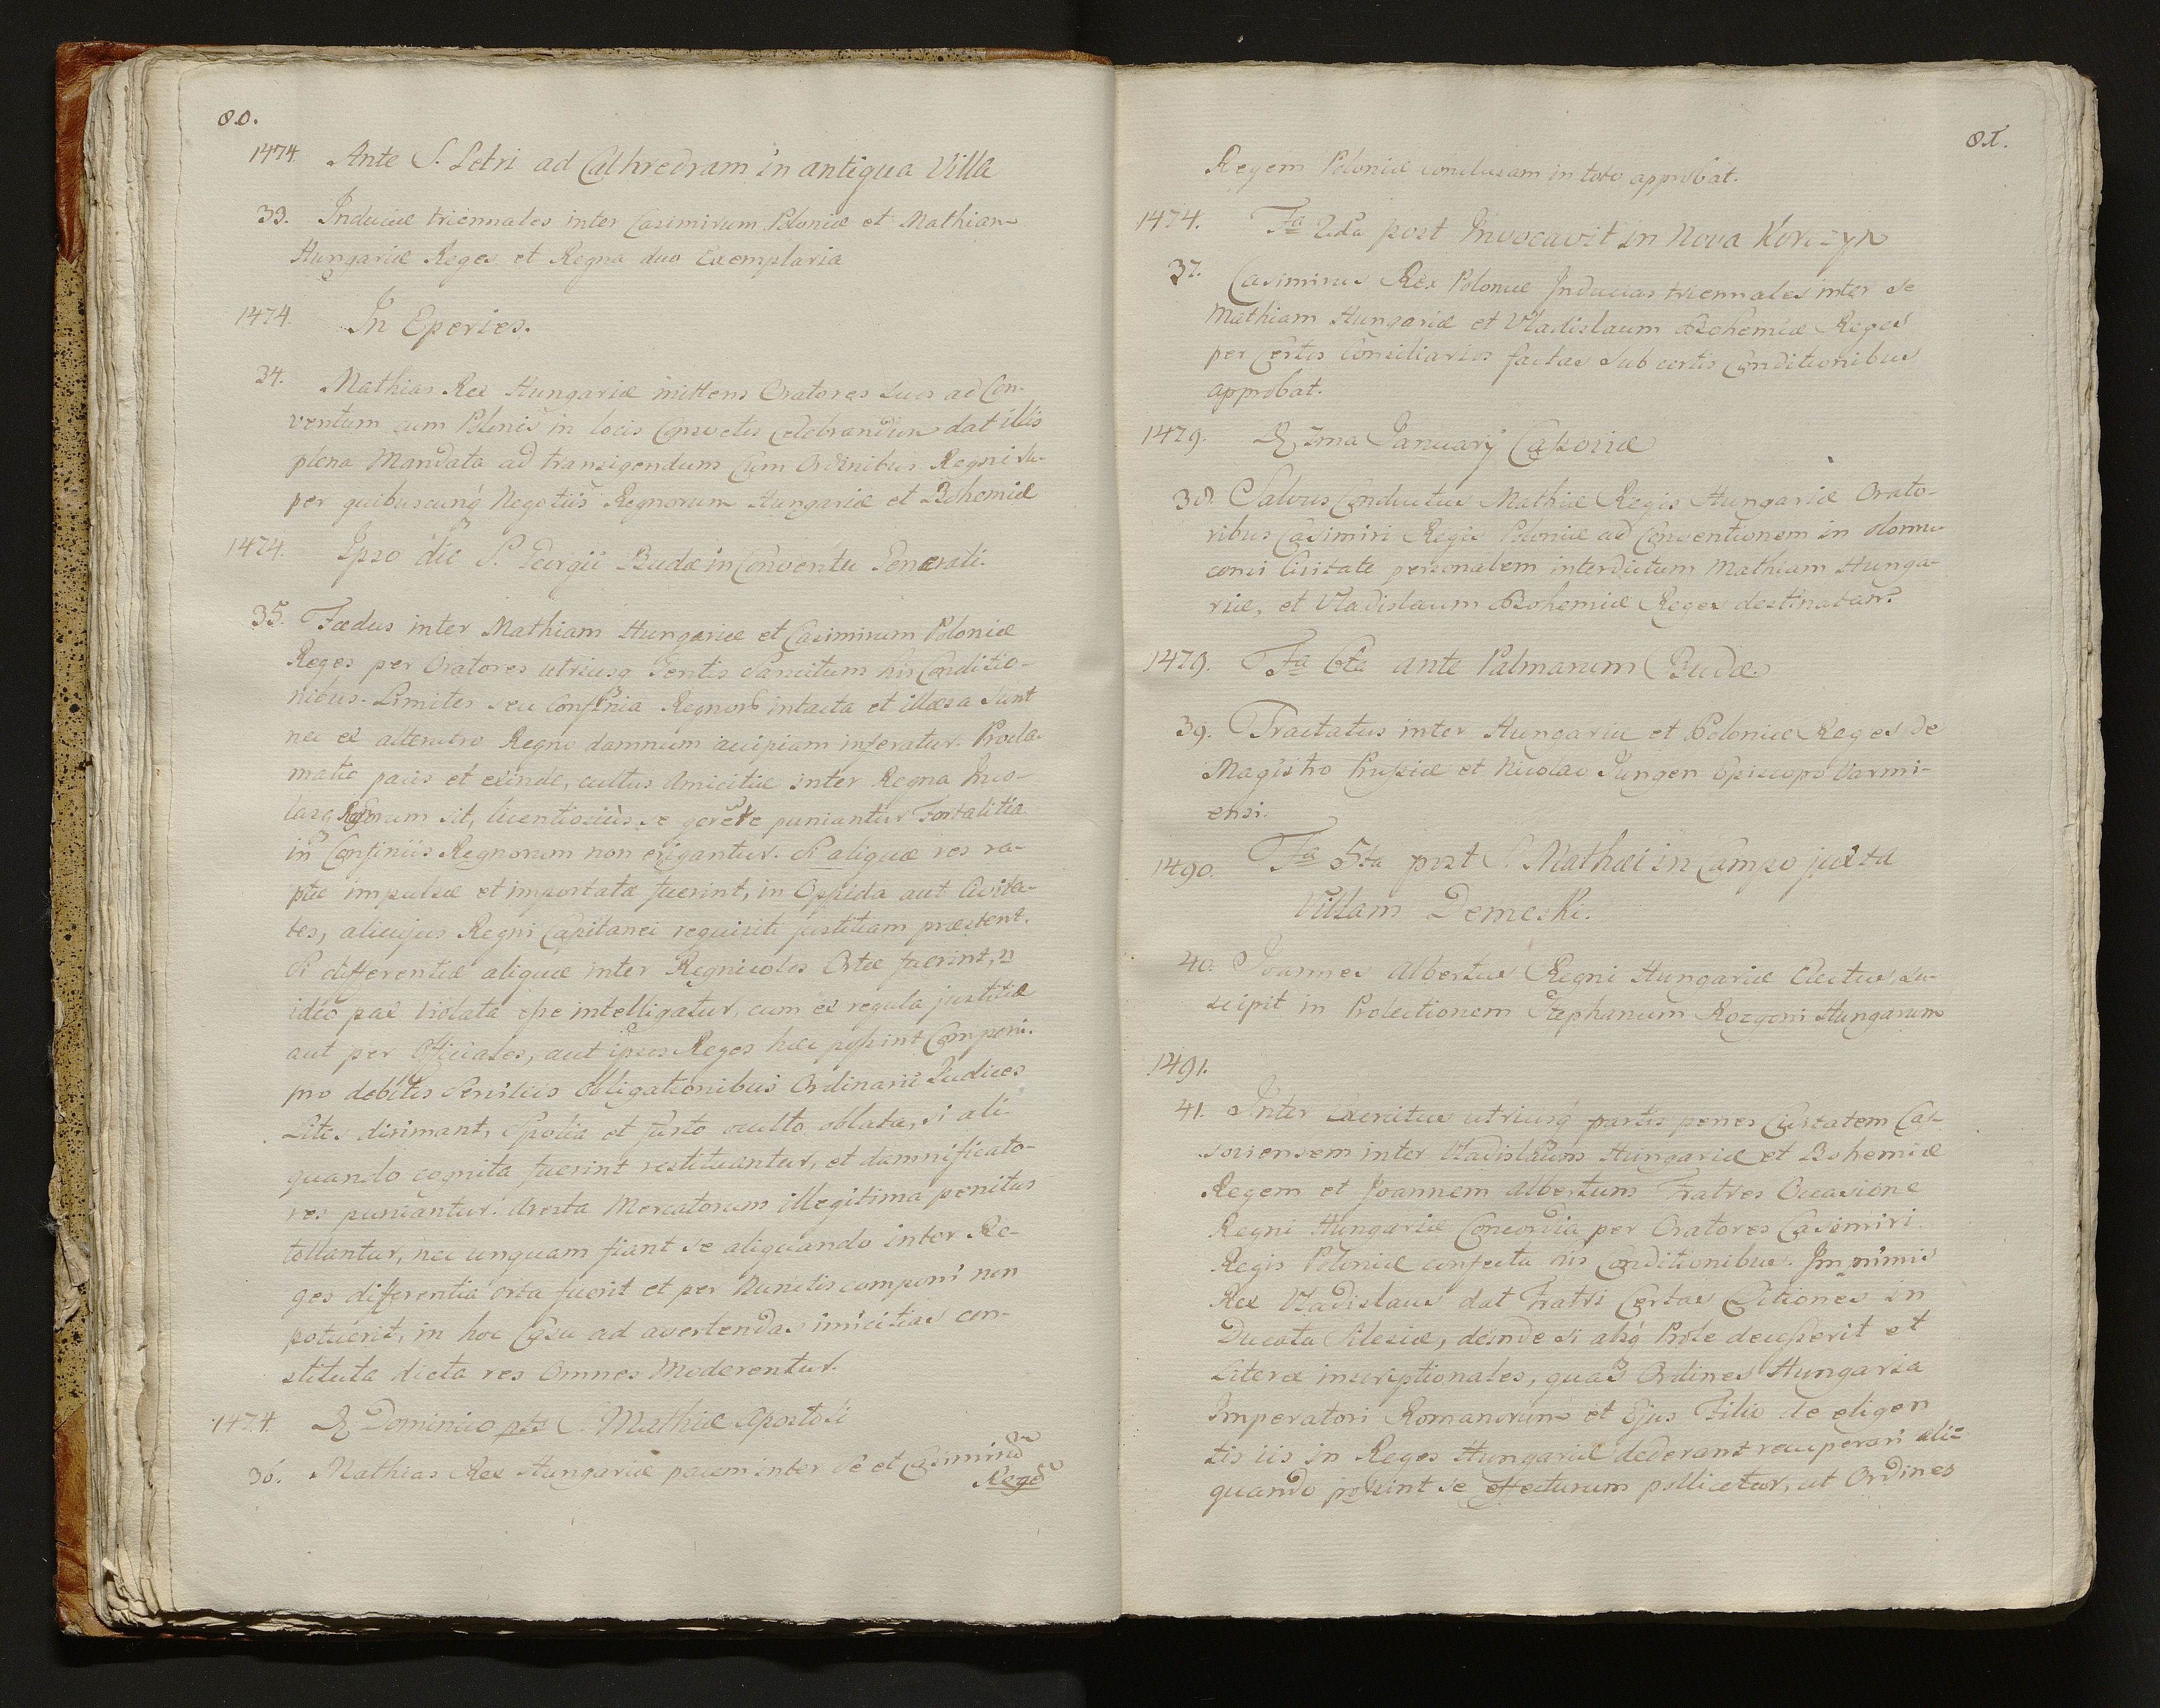 80.
1474. Ante S. Petri ad Cathredram in antiqua Villa
33. Induciæ triennales inter Casimirum Poloniæ et Mathiam
Hungariæ Reges et Regna duo Exemplaria
1474. In Eperies.
34. Mathias Rex Hungariæ mittens Oratores suos ad Con-
ventum cum Polonis in locis Consvetis Celebrandum dat illis
plena Mandata ad transigendum cum Ordinibus Regni su-
per quibuscunq Negotiis Regnorum Hungariæ et Bohemiæ
1474. Ipso die S. Georgii Budæ in Conventu Generali.
35. Fœdus inter Mathiam Hungariæ et Casimirum Poloniæ
Reges per Oratores utriusq Gentis Sancitum his Conditio-
nibus. Limites seu Confinia Regnorum intacta et illæsa sunt
nec ex alterutro Regno damnum cuipiam inferatur. Procla-
matio pacis et exinde, cultus Amicitiæ inter Regna Inco-
lasq Regnorum sit, licentiosiùs se gerere puniantur Fortalitia
in Confiniis Regnorum non erigantur. Si aliquæ res ra-
ptæ impulsæ et importatæ fuerint, in Oppida aut Civita-
tes, alicujus Regni Capitanei requisiti justitiam præstent.
Si differentiæ aliquæ inter Regnicolos Ortæ fuerint, n
ideo pax violata esse intelligatur, cum ex regula justitiæ
aut per Officiales, aut ipsos Reges hæc possint Componi.
pro debitis Servitiis obligationibus Ordinarii Judices
Lites dirimant, Spolia et furto oculto oblata, si ali-
quando cognita fuerint restituantur, et damnificato-
res puniantur. Aresta Mercatorum illegitima penitus
tollantur, nec unquam fiant se aliquando inter Re-
ges differentia orta fuerit et per Nuncios componi non
potuerit, in hoc Casu ad avertendas inicitias con-
stituta dicta res Omnes Moderentur.
1474. Dominico S. Mathiæ Apostoli
36. Mathias Rex Hungariæ pacem inter se et Casimirum
Regem
81.
Regem Poloniæ conclusam in toto approbat.
1474. Fa 2da post Invocavit in Nova Korczyn
37. Casimirus Rex Poloniæ Inducias triennales inter se
Mathiam Hungariæ et Vladislaum Bohemiæ Reges
per Certos Consiliarios factas sub certis Conditionibus
approbat.
1479. 7ma Januarij
38. Salvus Conductus Mathiæ Regis Hungariæ Orato-
ribus Casimiri Regis Poloniæ ad Conventionem in Olomu-
consi Civitate personalem interdictum Mathiam Hunga-
riæ, et Vladislaum Bohemiæ Reges destinatam.
1479. Fa 6ta ante Palmarum Budæ.
39. Tractatus inter Hungariæ et Poloniæ Reges de
Magistro Prussiæ et Nicolao Tungen Episcopo Varmi-
ensi.
1490. Fa 5ta post S. Mathæi in Campo juxta
Villam Demeski.
40. Joannes Albertus Regni Hungariæ Electus, su-
scipit in Protectionem Stephanum Rozgoni Hungarum
1491.
41. Inter Exercitus utriusq partis penes Civitatem Cas-
soviensem inter Vladislaum Hungariæ et Bohemiæ
Regem et Joannem Albertum Fratres Occasione
Regni Hungariæ Concordia per Oratores Casimiri
Regis Poloniæ confecta his Conditionibus. Imprimis
Rex Vladislaus dat Fratri Certas Ditiones in
Ducatu Silesiæ, deinde si absq Prole decesserit et
Literæ inscriptionales, quas Ordines Hungaria
Imperatori Romanorum et Ejus Filio de eligen
tis iis in Reges Hungariæ dederant recuperari ali-
quando possint se effecturum pollicetur, ut Ordines